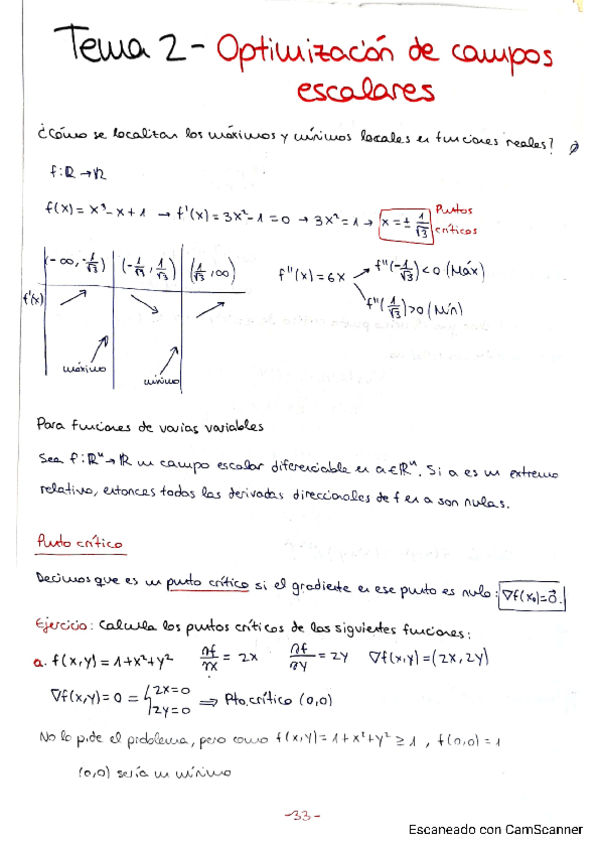 Tema 2 - Optimización de campos
escalares
¿Cómo se localizan los máximos y mínimos locales en funciones reales?
f: ℝ → ℝ
f(x) = x³ - x + 1 → f'(x) = 3x² - 1 = 0 → 3x² = 1 → x = ± 1/√3 Puntos críticos
(-∞, -1/√3) (-1/√3, 1/√3) (1/√3, ∞)
f''(x) = 6x
f''(-1/√3) < 0 (Máx)
f''(1/√3) > 0 (Mín)
f'(x)
máximo
mínimo
Para funciones de varias variables
Sea f: ℝⁿ → ℝ un campo escalar diferenciable en a ∈ ℝⁿ. Si a es un extremo
relativo, entonces todas las derivadas direccionales de f en a son nulas.
Punto crítico
Decimos que es un punto crítico si el gradiente en ese punto es nulo: ∇f(x₀) = 0⃗.
Ejercicio: Calcula los puntos críticos de las siguientes funciones:
a. f(x,y) = 1 + x² + y² ∂f/∂x = 2x ∂f/∂y = 2y ∇f(x,y) = (2x, 2y)
∇f(x,y) = 0 = { 2x = 0 2y = 0 ⇒ Pto. crítico (0,0)
No lo pide el problema, pero como f(x,y) = 1 + x² + y² ≥ 1, f(0,0) = 1
(0,0) sería un mínimo
-33-
Escaneado con CamScanner